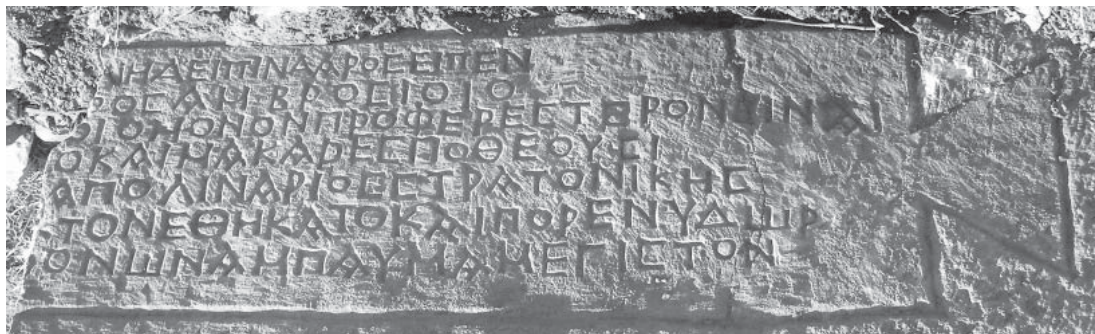 ΝΗΔΕΙΠΙΝΔΑΡΟϹΕΙΠΕΝ
ΡΟϹΑΜΒΡΟϹΙΟΙΟ
ΙΟΜΟΝΟΝΠΡΟΦΕΡΕϹΤΕΡΟΝΕΙΝΑΙ
ΟΚΑΙΜΑΚΑΡΕϹΠΟΘΕΟΥϹΙ
ΑΠΟΛΙΝΑΡΙΟϹϹΤΡΑΤΟΝΙΚΗϹ
ΤΟΝΕΘΗΚΑΤΟΚΑΙΠΟΡΕΝΥΔΩΡ
ΟΝΩΝΑΜΠΑΥΜΑΜΕΓΙϹΤΟΝ